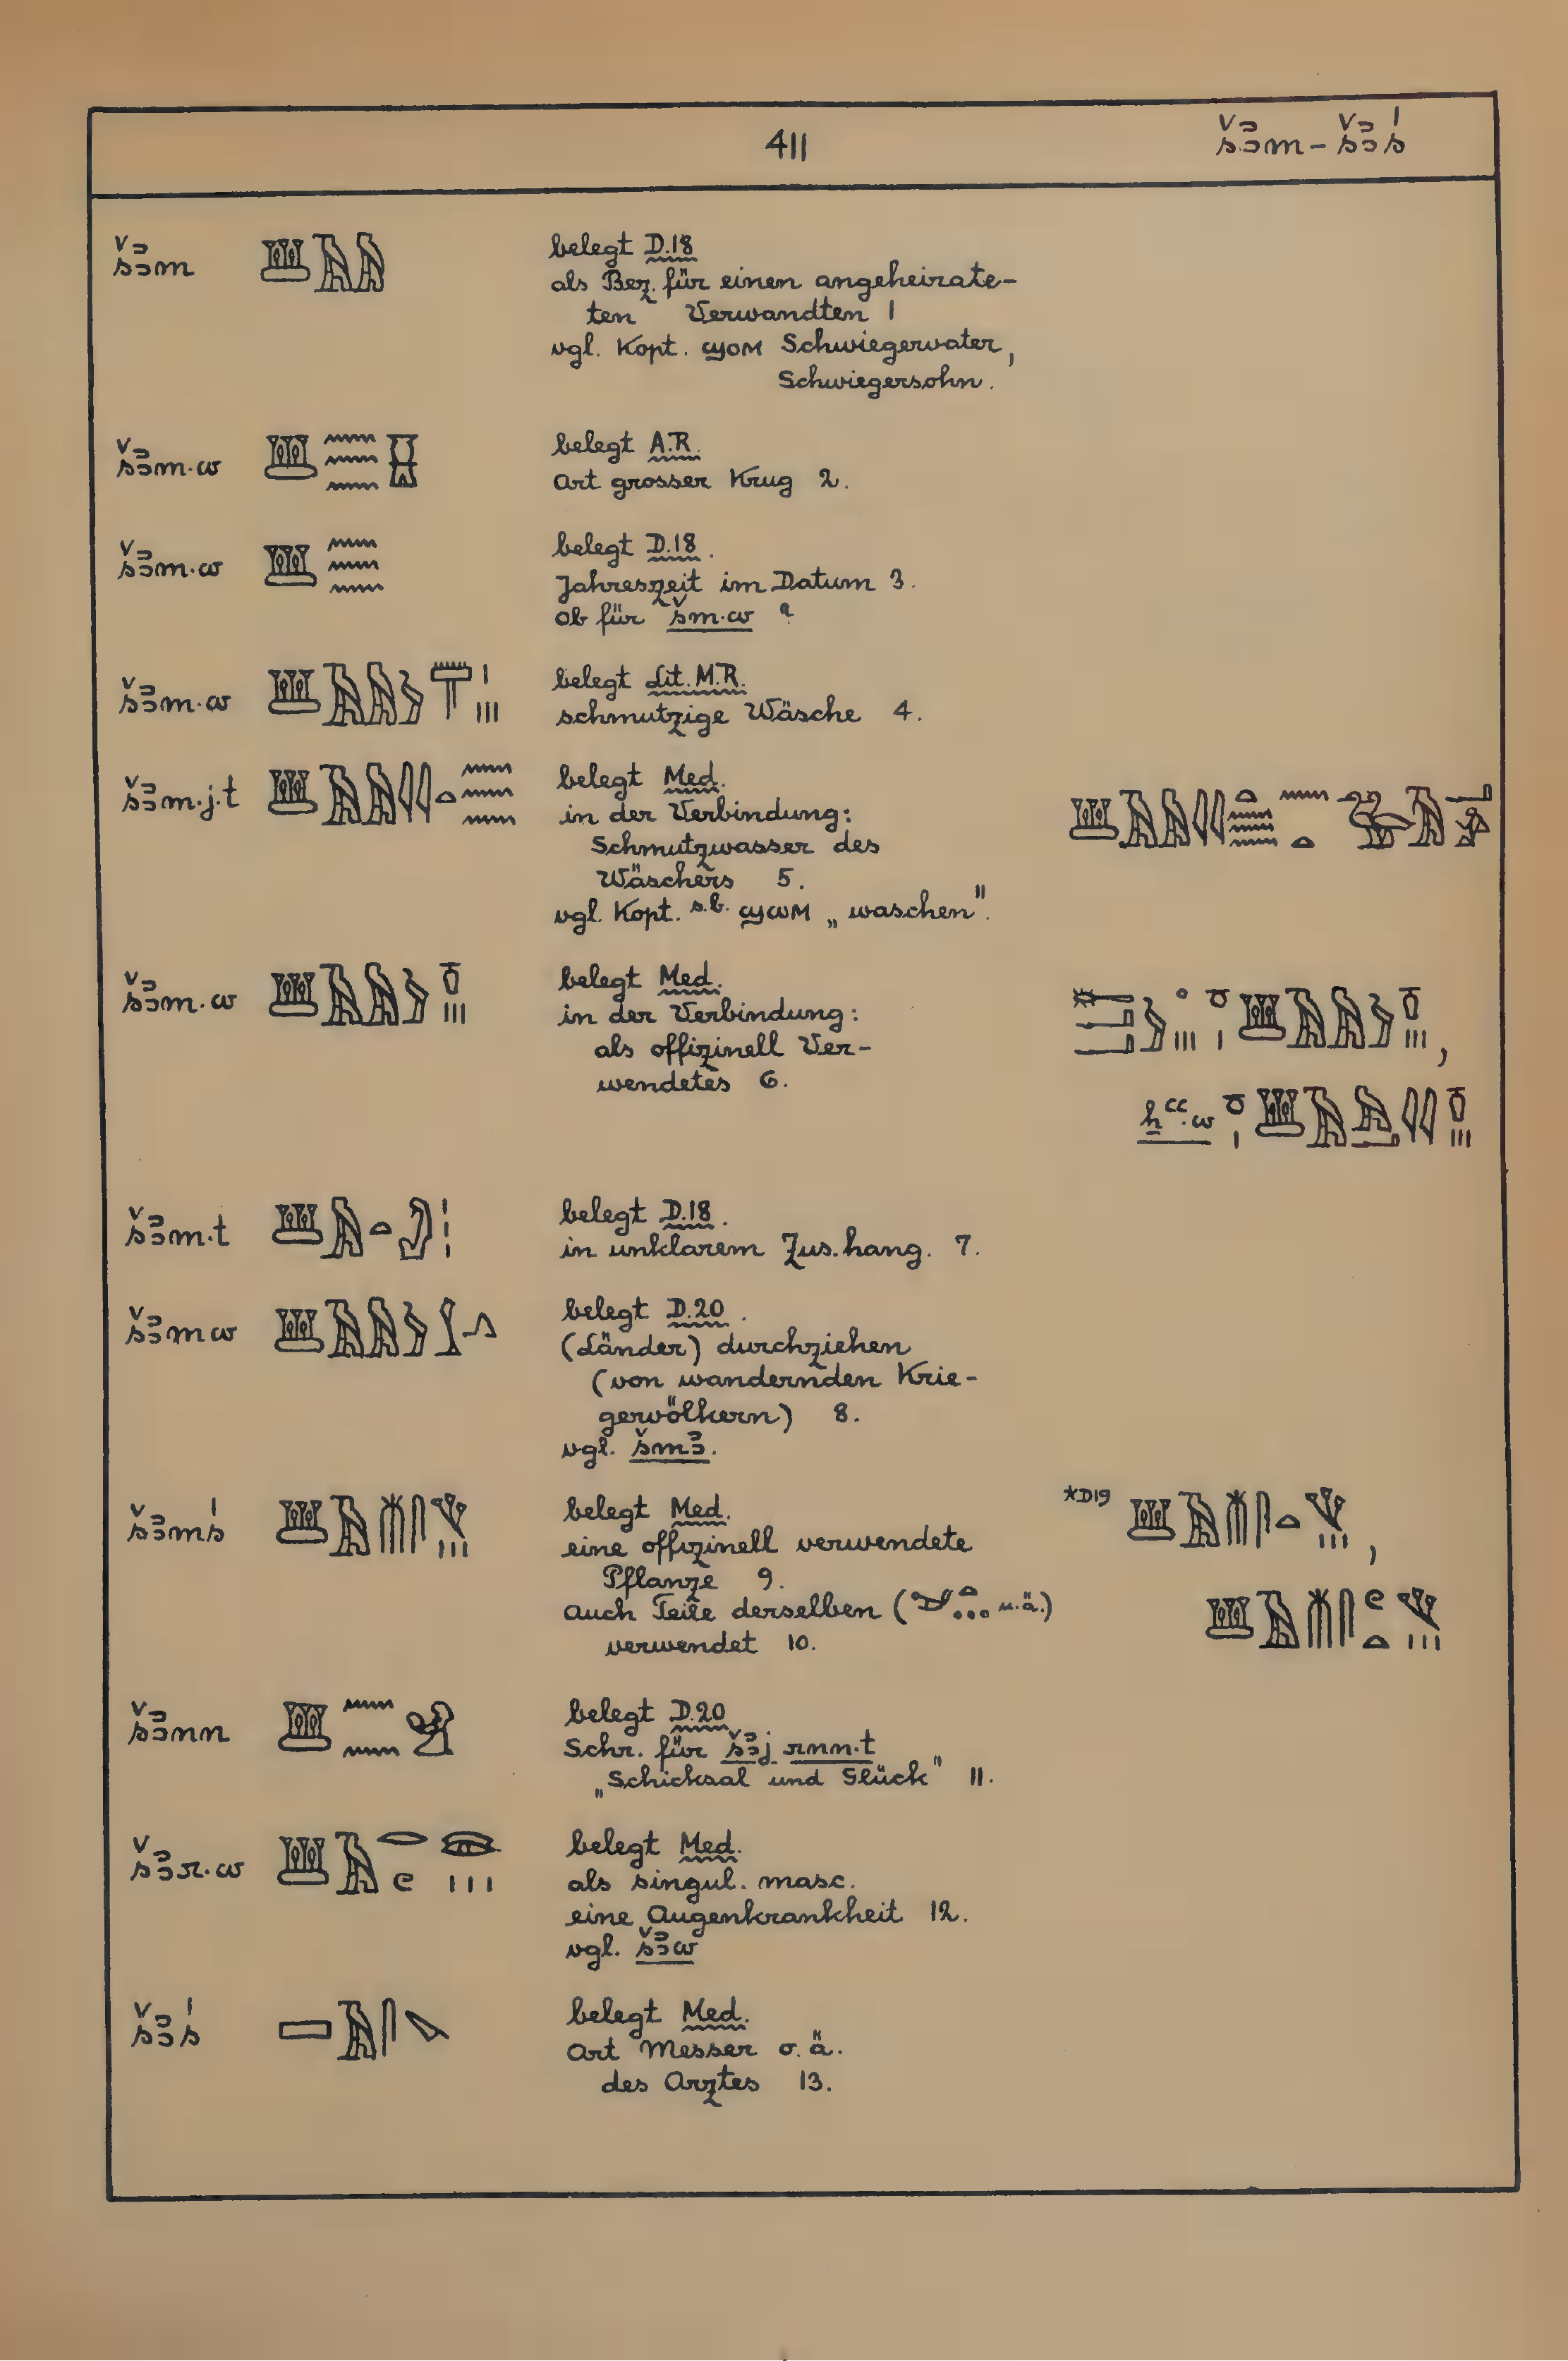 411
šꜣm – šꜣś
šꜣm 𓆷𓅓𓅓 belegt D.18
als Bez. für einen angeheirate-
ten Verwandten 1
vgl. Kopt. ϣⲟⲙ Schwiegervater,
Schwiegersohn.
šꜣm.w belegt A.R.
Art grosser Krug 2.
šꜣm.w 𓆷𓈗 belegt D.18.
Jahreszeit im Datum 3.
ob für šm.w ?
šꜣm.w belegt Lit. M.R.
schmutzige Wäsche 4.
šꜣm.j.t belegt Med.
in der Verbindung:
Schmutzwasser des
Wäschers 5.
vgl. Kopt. s.b. ϣⲱⲙ „waschen".
šꜣm.w belegt Med.
in der Verbindung:
als offizinell Ver-
wendetes 6.
šꜣm.t belegt D.18.
in unklarem Zus.hang. 7.
šꜣmw belegt D.20.
(Länder) durchziehen
(von wandernden Krie-
gervölkern) 8.
vgl. šmꜣ.
šꜣmś belegt Med.
eine offizinell verwendete
Pflanze 9.
auch Teile derselben ( u.ä.)
verwendet 10.
*D19
šꜣnn belegt D.20
Schr. für šꜣj rnn.t
„Schicksal und Glück" 11.
šꜣr.w belegt Med.
als singul. masc.
eine Augenkrankheit 12.
vgl. šꜣw
šꜣś belegt Med.
Art Messer o.ä.
des Arztes 13.